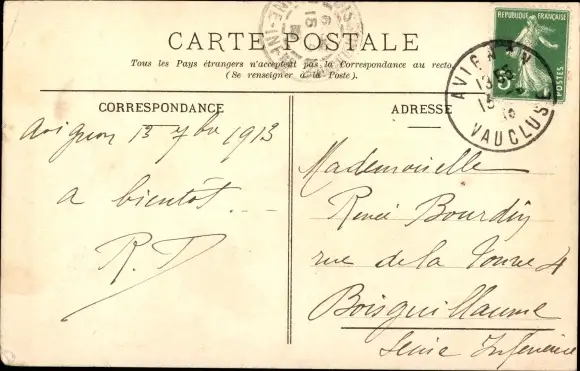 CARTE POSTALE
Tous les Pays étrangers n'acceptent pas la Correspondance au recto.
(Se renseigner à la Poste).
REPUBLIQUE FRANÇAISE
5
POSTES
AVIGNON
13
15
VAUCLUSE
CORRESPONDANCE
Avignon 13 7bre 1913
a bientôt ...
R. D
ADRESSE
Mademoiselle
Renée Bourdin
rue de la
4
Boisguillaume
Seine Inférieure